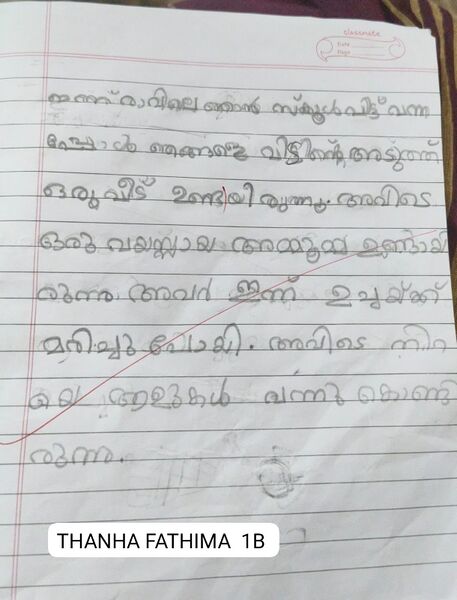 classmate
Date
Page
ഇന്ന് രാവിലെ ഞാൻ സ്കൂൾ വിട്ട് വന്ന
പ്പോൾ ഞങ്ങളെ വീട്ടിൻ്റെ അടുത്ത്
ഒരു വീട് ഉണ്ടായിരുന്നു. അവിടെ
ഒരു വയസ്സായ അമ്മൂമ്മ ഉണ്ടായി
രുന്നു. അവർ ഇന്ന് ഉച്ചയ്ക്ക്
മരിച്ചു പോയി. അവിടെ നിറ
യെ ആളുകൾ വന്നു കൊണ്ടി
രുന്നു.
THANHA FATHIMA 1B